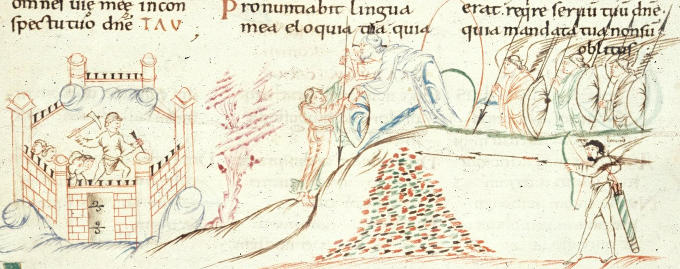 omnes uię meę incon
spectutuo dnē TAV
Pronuntiabit lingua
mea eloquia tua quia
erat. reqre seruū tuū dnē.
quia mandata tua nonsū
oblitus